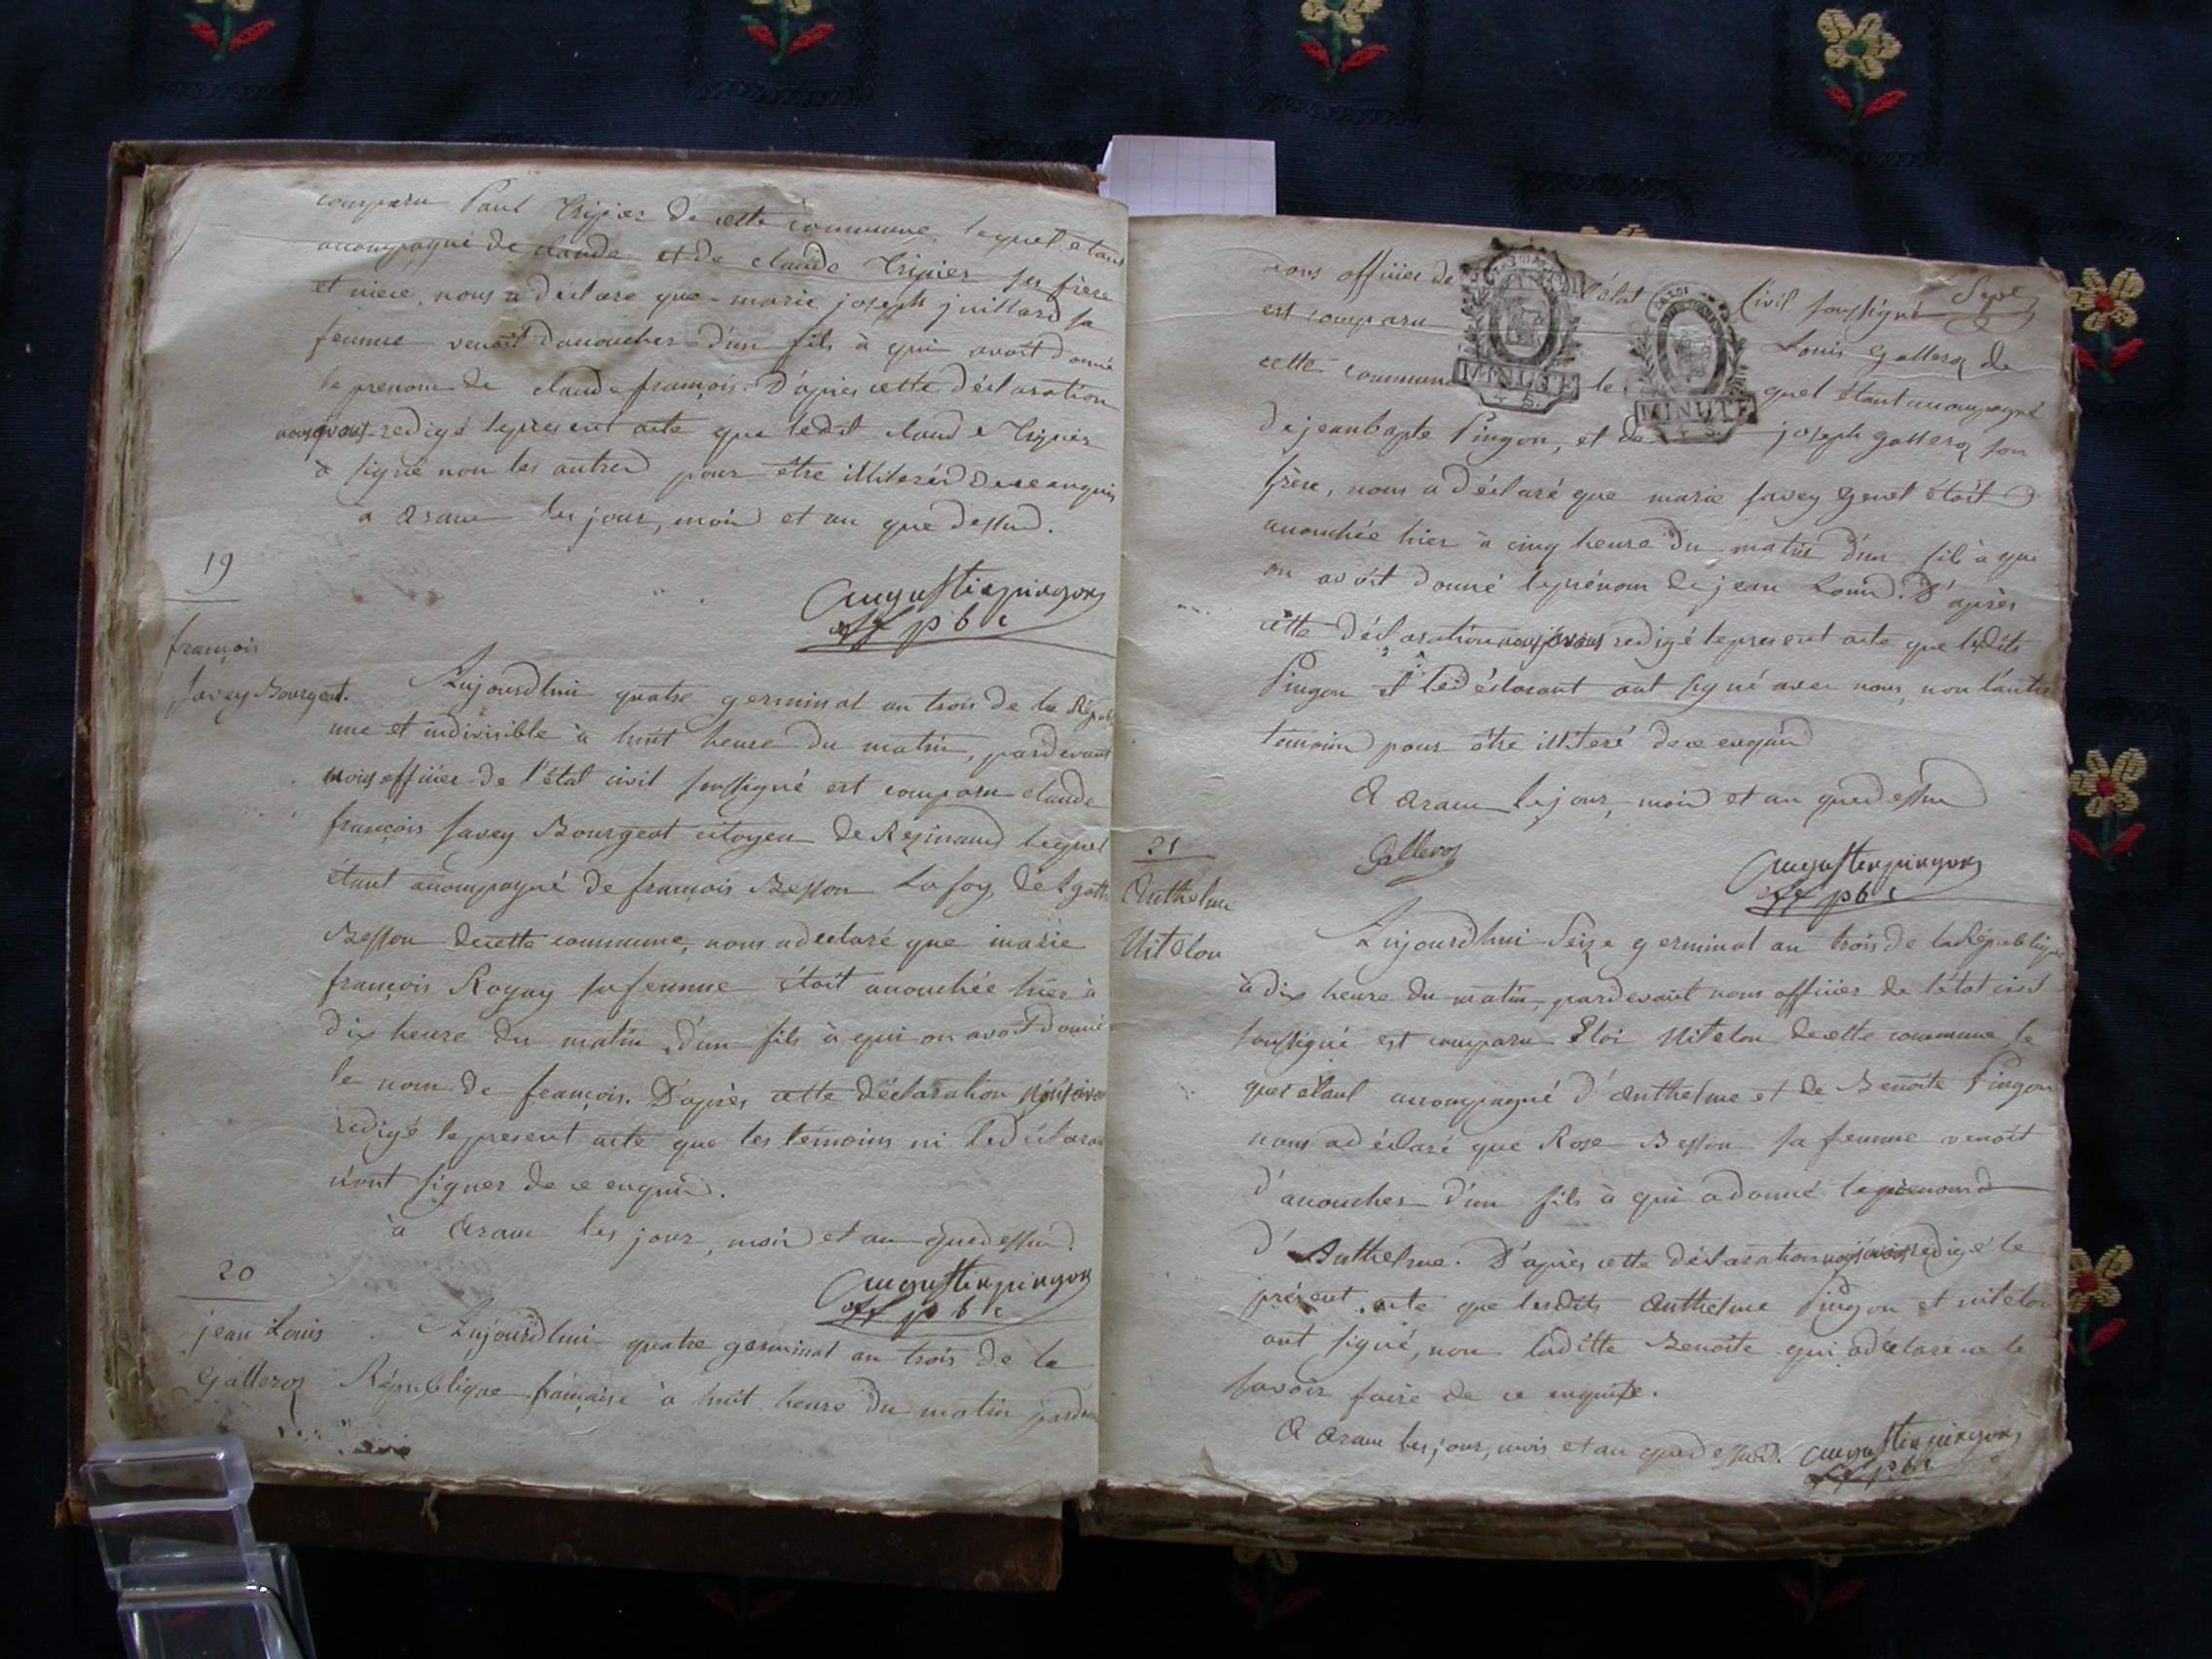 comparu Paul Tripier de cette commune, lequel etant
accompagné de claude et de claude Tripier ses frère
et niece, nous a déclaré que marie joseph juillard sa
femme venoit d'accoucher d'un fils à qui avoit donné
le prenom de claude françois. D'après cette déclaration
nous avons redigé le present acte que ledit claude Tripier
a signé non les autres pour être illiterés de ce enquis
a aram les jour, mois et an que dessus.
augustin pingon
off pbc
19
françois
savey Bourgeot.
Aujourdhui quatre germinal an trois de la Répub
une et indivisible à huit heure du matin, pardevant
nous officier de l'état civil soussigné est comparu claude
françois savey Bourgeot citoyen de lequel
étant accompagné de françois Besson Lafoy, de
Besson decette commune, nous adeclaré que marie
françois Royay sa femme étoit accouchée hier à
dix heure du matin d'un fils à qui on avoit donné
le nom de françois. D'après cette déclaration nous avon
redigé le present acte que les témoins ni le déclaran
n'ont signer de ce enquis.
à aram les jour, mois et an que dessus.
augustin pingon
off pbc
20
jean Louis
Galleroz
Aujourdhui quatre germinal an trois de la
République française à huit heure du matin parde
nous officier de l'état civil soussigné
est comparu Louis Galleroz de
cette commune lequel étant accompagné
MINUTE
4 S.
MINUTE
4 S.
de jean bapte Pingon, et de joseph galleroz son
frère, nous a déclaré que marie savey genet étoit
accouchée hier à cinq heure du matin d'un fil à qui
on avoit donné le prénom de jean Louis. D'après
cette déclaration nous avons redigé le present acte que lesdits
Pingon et le déclarant ont signé avec nous, non l'autre
temoin pour être illiteré de ce enquis
A aram les jour, mois et an que dessus
Galleroz
augustin pingon
off pbc
21
Anthelme
Mitelon
Aujourdhui Seize germinal an trois de la République
à dix heure du matin, pardevant nous officier de l'état civil
soussigné est comparu Eloi Mitelon decette commune le
quel étant accompagné d'anthelme et de Benoite Pingon
nous a déclaré que Rose Besson sa femme venoit
d'accoucher d'un fils à qui a donné le prenom
d'Anthelme. D'après cette déclaration nous avons redigé le
présent acte que lesdits anthelme Pingon et mitelon
ont signé, non laditte Benoite qui a déclaré ne le
savoir faire de ce enquise.
A aram les jour, mois et an que dessus. augustin pingon
off pbc